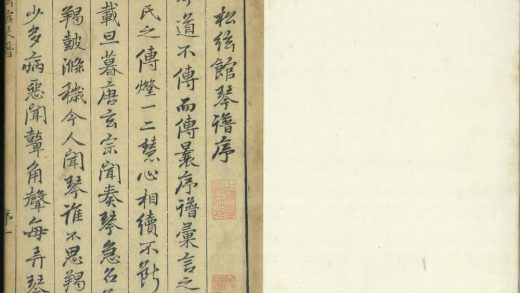 松絃館琴譜序
道不傳而傳彙序譜彙言之
氏之傳燈一二慧心相續不斷
載旦暮唐玄宗聞奏琴急召
羯鼓滌穢今人聞琴誰不思羯
少多病惡聞鼙角聲每弄琴
館琴譜
序一